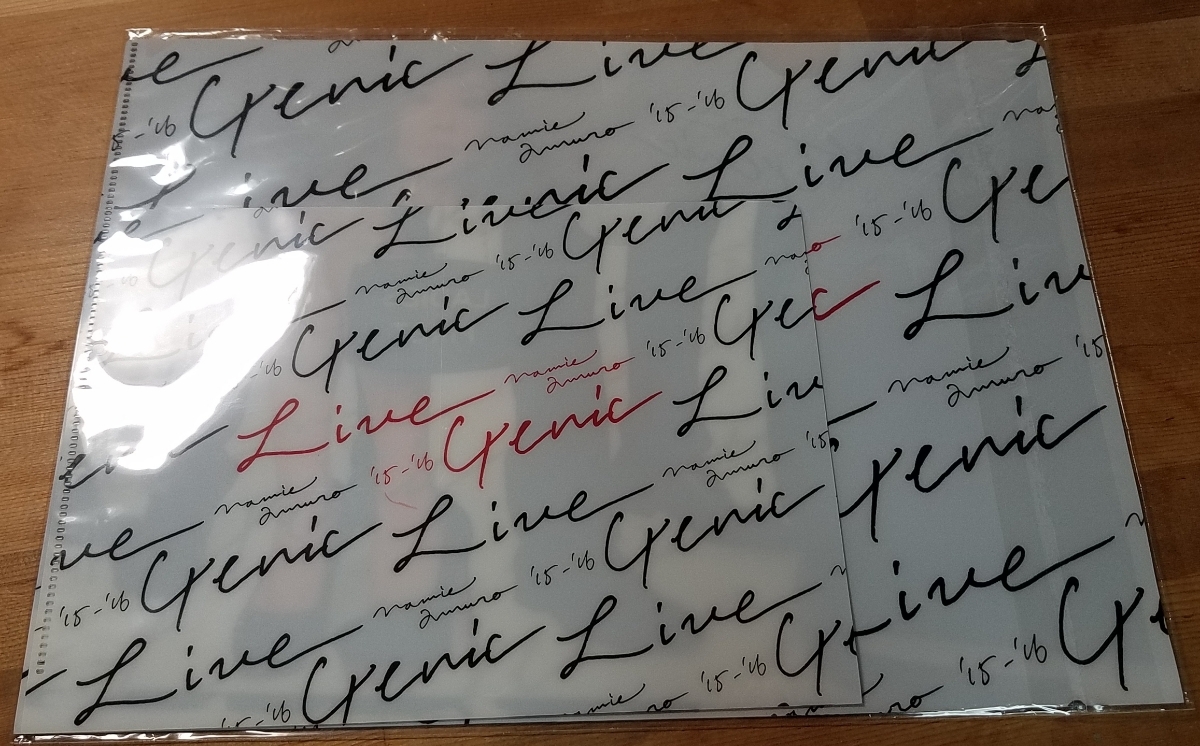 Live
Genic Live Genic
'15-'16
namie
amuro '15-'16
Live Genic Live
namie
amuro '15-'16
Genic Live
namie
amuro '15-'16
Genic Live
namie
amuro '15-'16
Live Genic Live
namie
amuro '15-'16
Genic Live
namie
amuro '15-'16
Live Genic
namie
amuro '15-'16
Live Genic Live
namie
amuro '15-'16
Genic